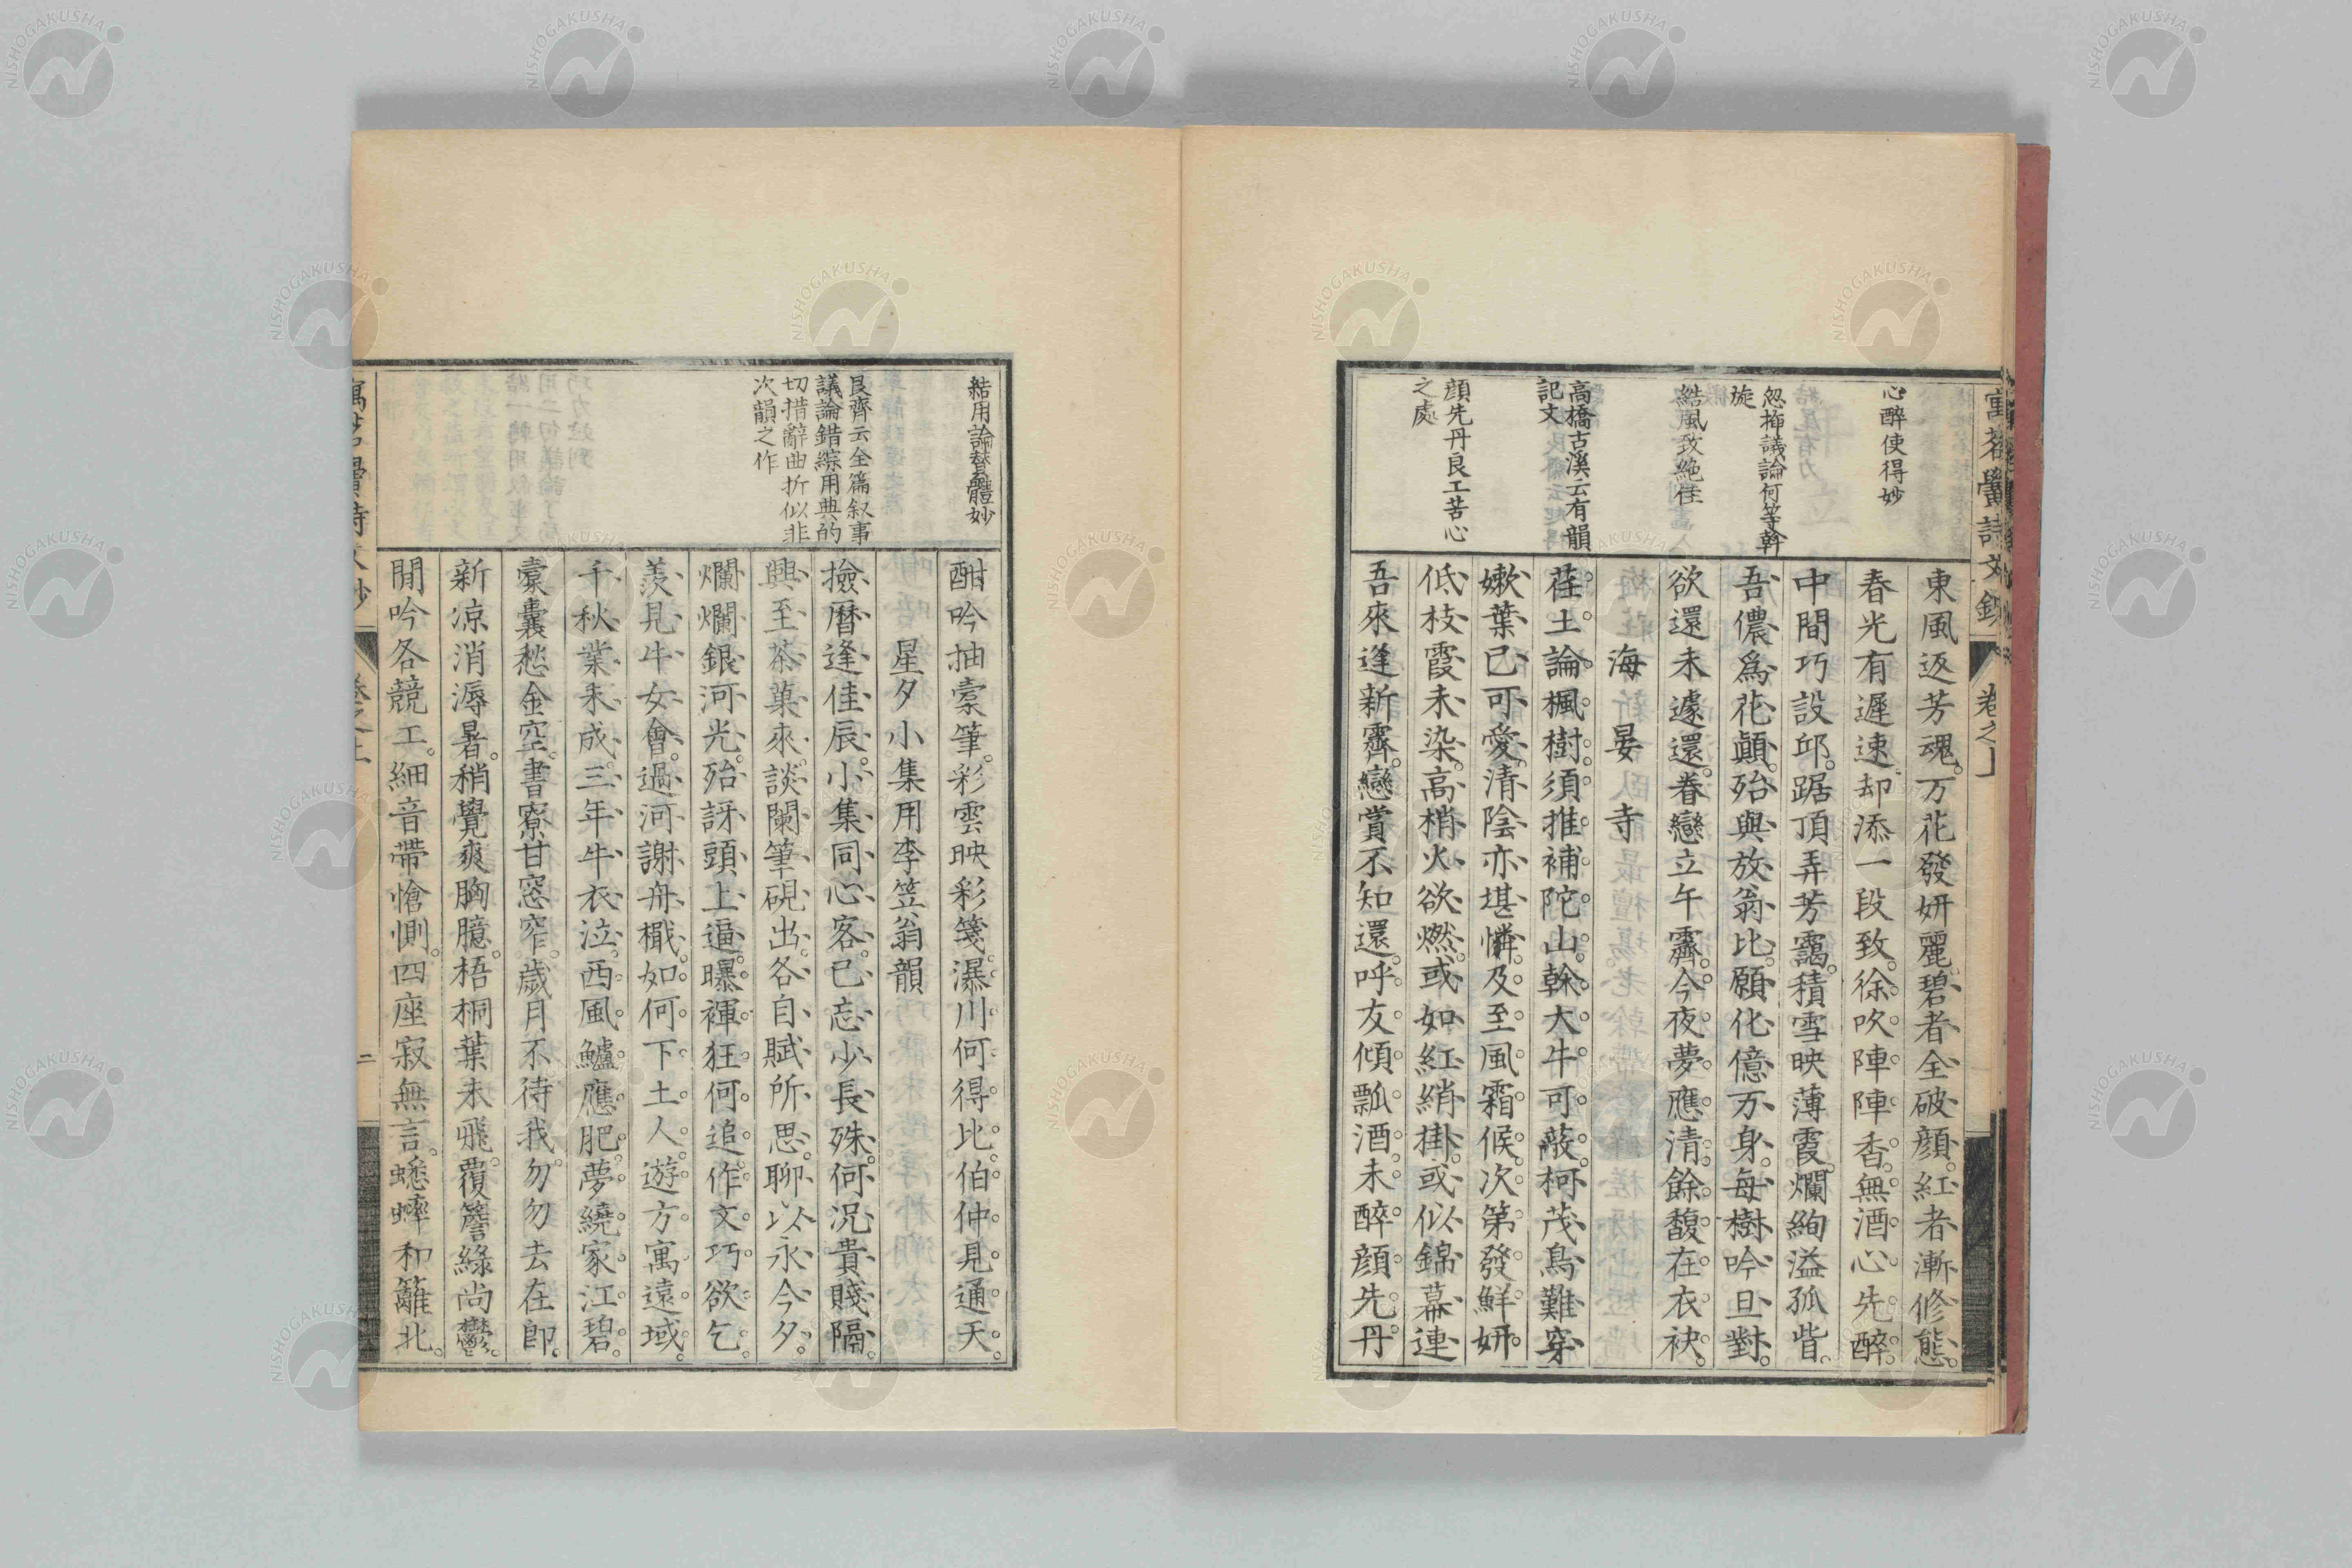 心醉使得妙
忽插議論何等斡
旋
結風致絶佳
高橋古溪云有韻
記文
顔先丹良工苦心
之處
東風返芳魂。万花發妍麗。碧者全破顔。紅者漸修態。
春光有遲速。却添一段致。徐吹陣陣香。無酒心先醉。
中間巧設邱。踞頂弄芳靄。積雪映薄霞。爛絢溢孤眥。
吾儂爲花顚。殆與放翁比。願化億万身。每樹吟且對。
欲還未遽還。眷戀立午霽。今夜夢應清。餘馥在衣袂。
海晏寺
荏土論楓樹。須推補陀山。榦大牛可蔽。柯茂鳥難穿。
嫩葉已可愛。清陰亦堪憐。及至風霜候。次第發鮮妍。
低枝霞未染。高梢火欲燃。或如紅綃掛。或似錦幕連。
吾來逢新霽。戀賞不知還。呼友傾瓢酒。未醉顔先丹。
結用論贊體妙
艮齊云全篇叙事
議論錯綜用典的
切措辭曲折似非
次韻之作
酣吟抽橐筆。彩雲映彩箋。瀑川何得比。伯仲見通天。
星夕小集用李笠翁韻
撿曆逢佳辰。小集同心客。已忘少長殊。何況貴賤隔。
興至茶菓來。談闌筆硯出。各自賦所思。聊以永今夕。
爛爛銀河光。殆訝頭上逼。曝褌狂何追。作文巧欲乞。
羨見牛女會。過河謝舟檝。如何下土人。遊方寓遠域。
千秋業未成。三年牛衣泣。西風鱸應肥。夢繞家江碧。
橐囊愁金空。書寮甘窓窄。歲月不待我。勿勿去在卽。
新凉消溽暑。稍覺爽胸臆。梧桐葉未飛。覆簷綠尚鬱。
閒吟各競工。細音帶愴惻。四座寂無言。蟋蟀和籬北。
二